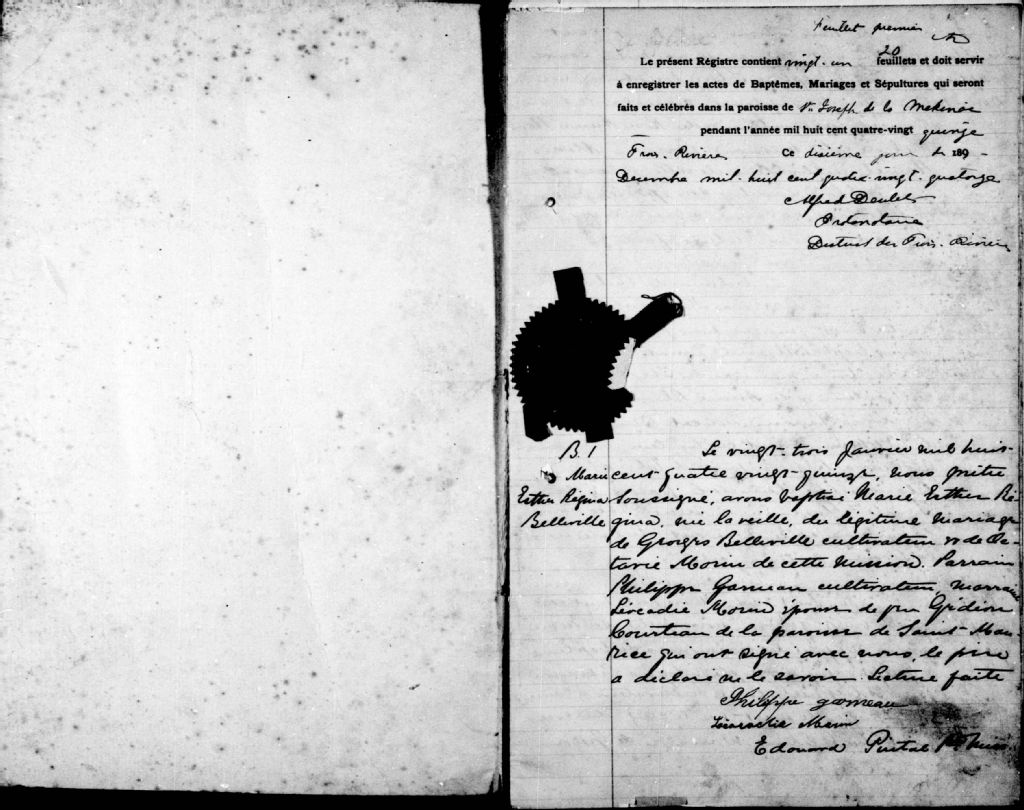 Feuillet premier
20
Le présent Régistre contient vingt-un feuillets et doit servir
à enregistrer les actes de Baptêmes, Mariages et Sépultures qui seront
faits et célébrés dans la paroisse de St Joseph de la Mekinac
pendant l'année mil huit cent quatre-vingt quinze
Trois-Rivières Ce dixième jour de 189
Decembre mil-huit cent quatre-vingt-quatorze
Alfred Desilets
Protonotaire
District des Trois-Rivières
B. 1
Marie
Esther Régina
Belleville
Le vingt-trois Janvier mil huit
cent quatre vingt-quinze, nous prêtre
Soussigné, avons baptisé Marie Esther Ré-
gina, née la veille, du légitime mariage
de Georges Belleville cultivateur & de Oc-
tavie Morin de cette Mission. Parrain
Philippe Garneau cultivateur, marraine
Léocadie Morin épouse de feu Gédéon
Courteau de la paroisse de Saint-Mau-
rice qui ont signé avec nous, le père
a déclaré ne le savoir. Lecture faite
Philippe garneau
Morin
Edouard Pintal Ptre Miss